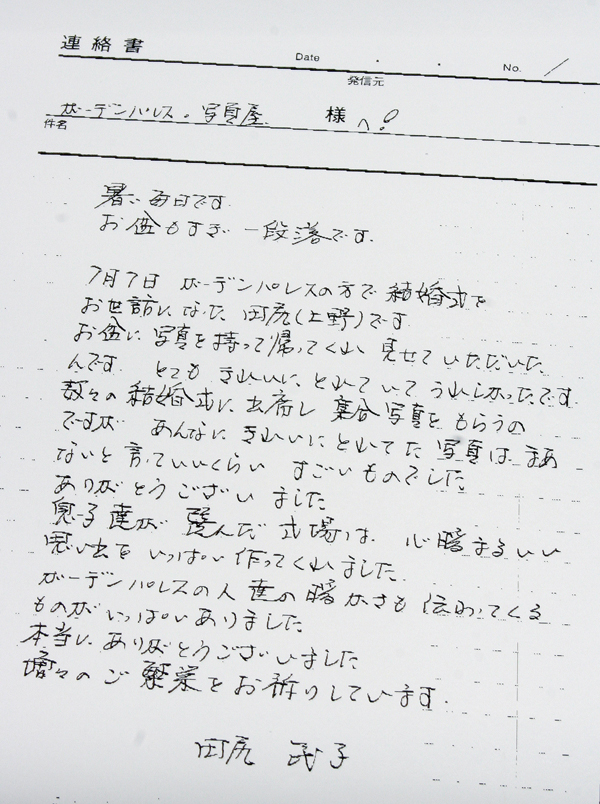 連絡書
Date ・ ・ No. /
発信元
ガーデンパレス・写真屋 様へ!
件名
暑い毎日です.
お盆もすぎ 一段落です.
7月7日 ガーデンパレスの方で結婚式を
お世話になった 田尻(上野)です
お盆に写真を持って帰ってくれ 見せていただいた
んです. とても きれいに とれて いて うれしかったです.
数々の結婚式に出席し 集合写真を もらうの
ですが あんなに きれいに とれてた 写真は まあ
ないと言っていいくらい すごいものでした
ありがとうござい ました
息子達が 選んだ 式場は 心暖まるいい
思い出を いっぱい作ってくれました.
ガーデンパレスの人達の暖かさも 伝わってくる
ものがいっぱいありました
本当に ありがとうございました
増々のご繁栄をお祈りしています.
田尻 民子